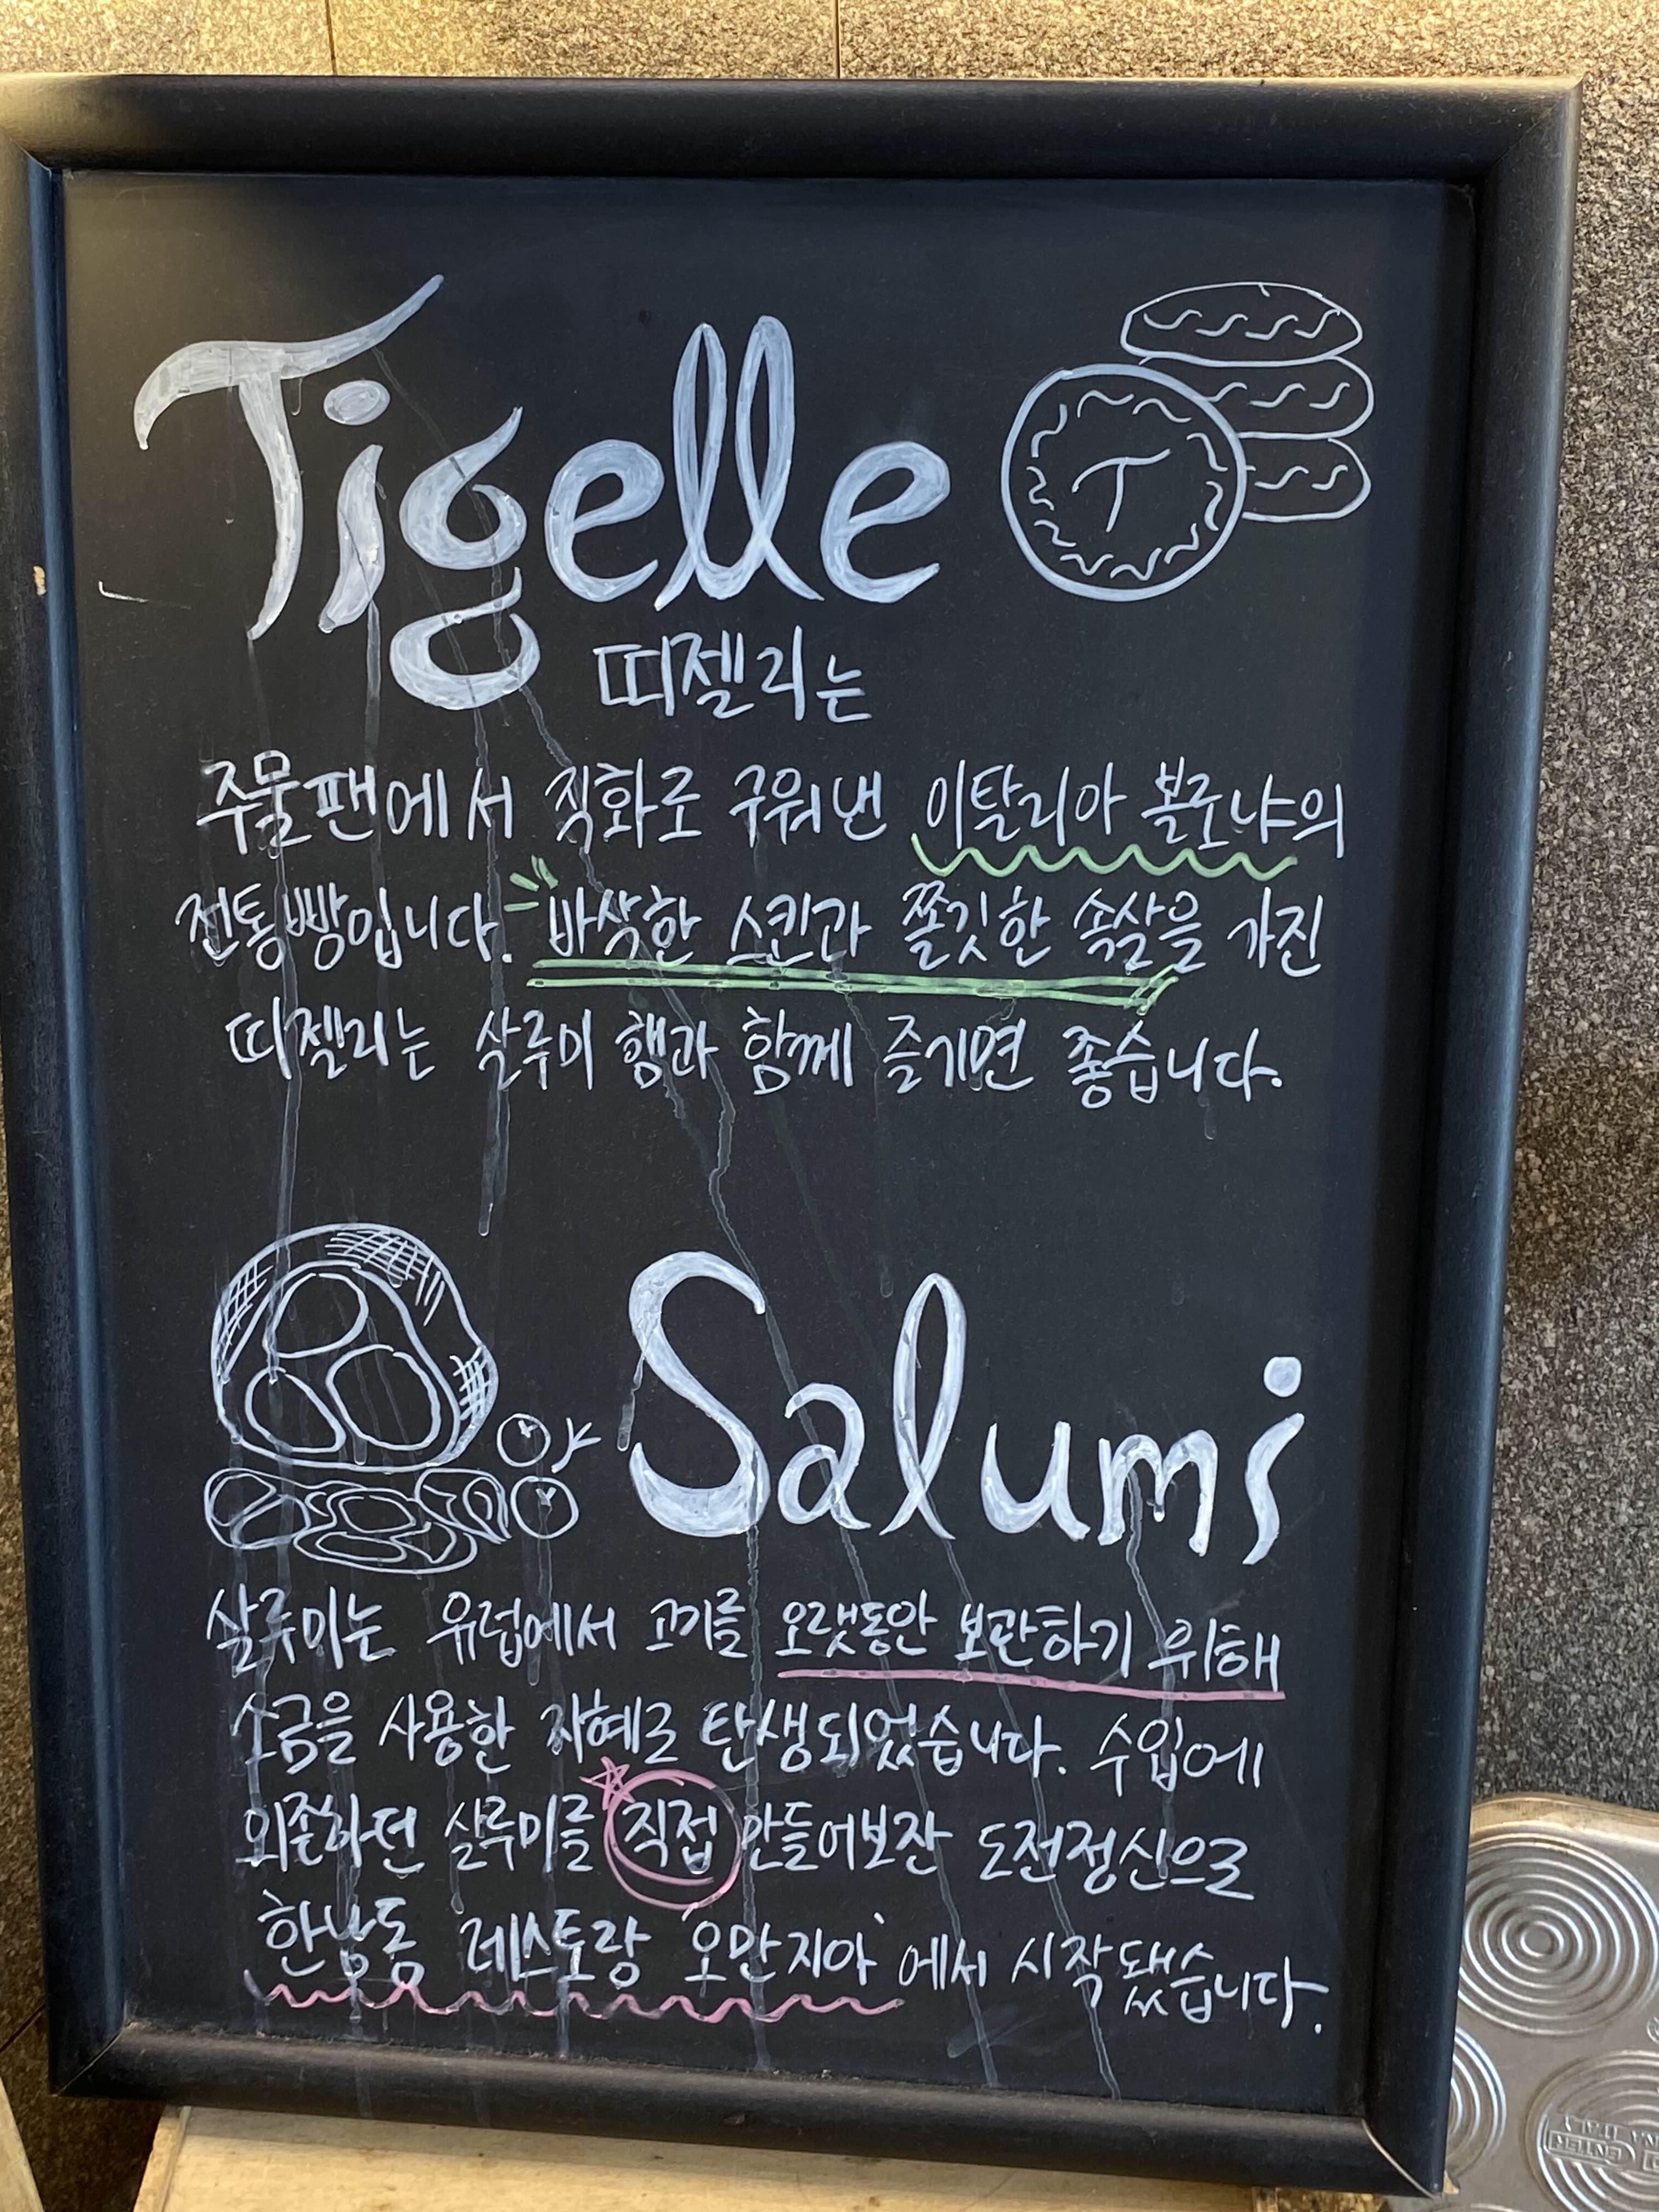 Tigelle
T
띠젤리는
주물팬에서 직화로 구워낸 이탈리아 볼로냐의
전통빵입니다. 바삭한 스킨과 쫄깃한 속살을 가진
띠젤리는 살루미 햄과 함께 즐기면 좋습니다.
Salumi
살루미는 유럽에서 고기를 오랫동안 보관하기 위해
소금을 사용한 지혜로 탄생되었습니다. 수입에
의존하던 살루미를 직접 만들어보잔 도전정신으로
한남동 레스토랑 '오만지아' 에서 시작됐습니다.